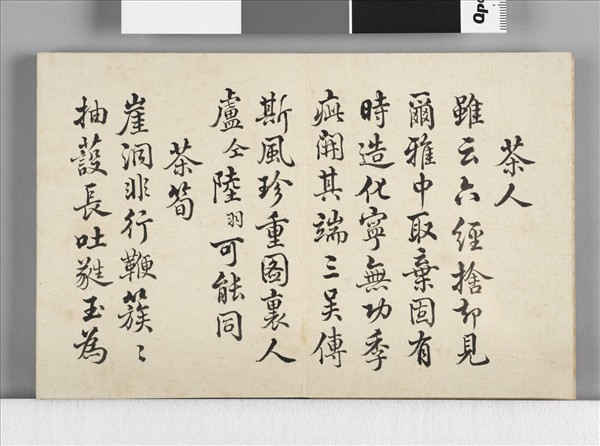 茶人
雖云六經捨却見
爾雅中取棄固有
時造化寧無功季
疵開其端三吴傳
斯風珍重圖裏人
盧仝陸羽可能同
茶筍
崖洞非行鞭簇〻
抽蔎長吐蕤玉為